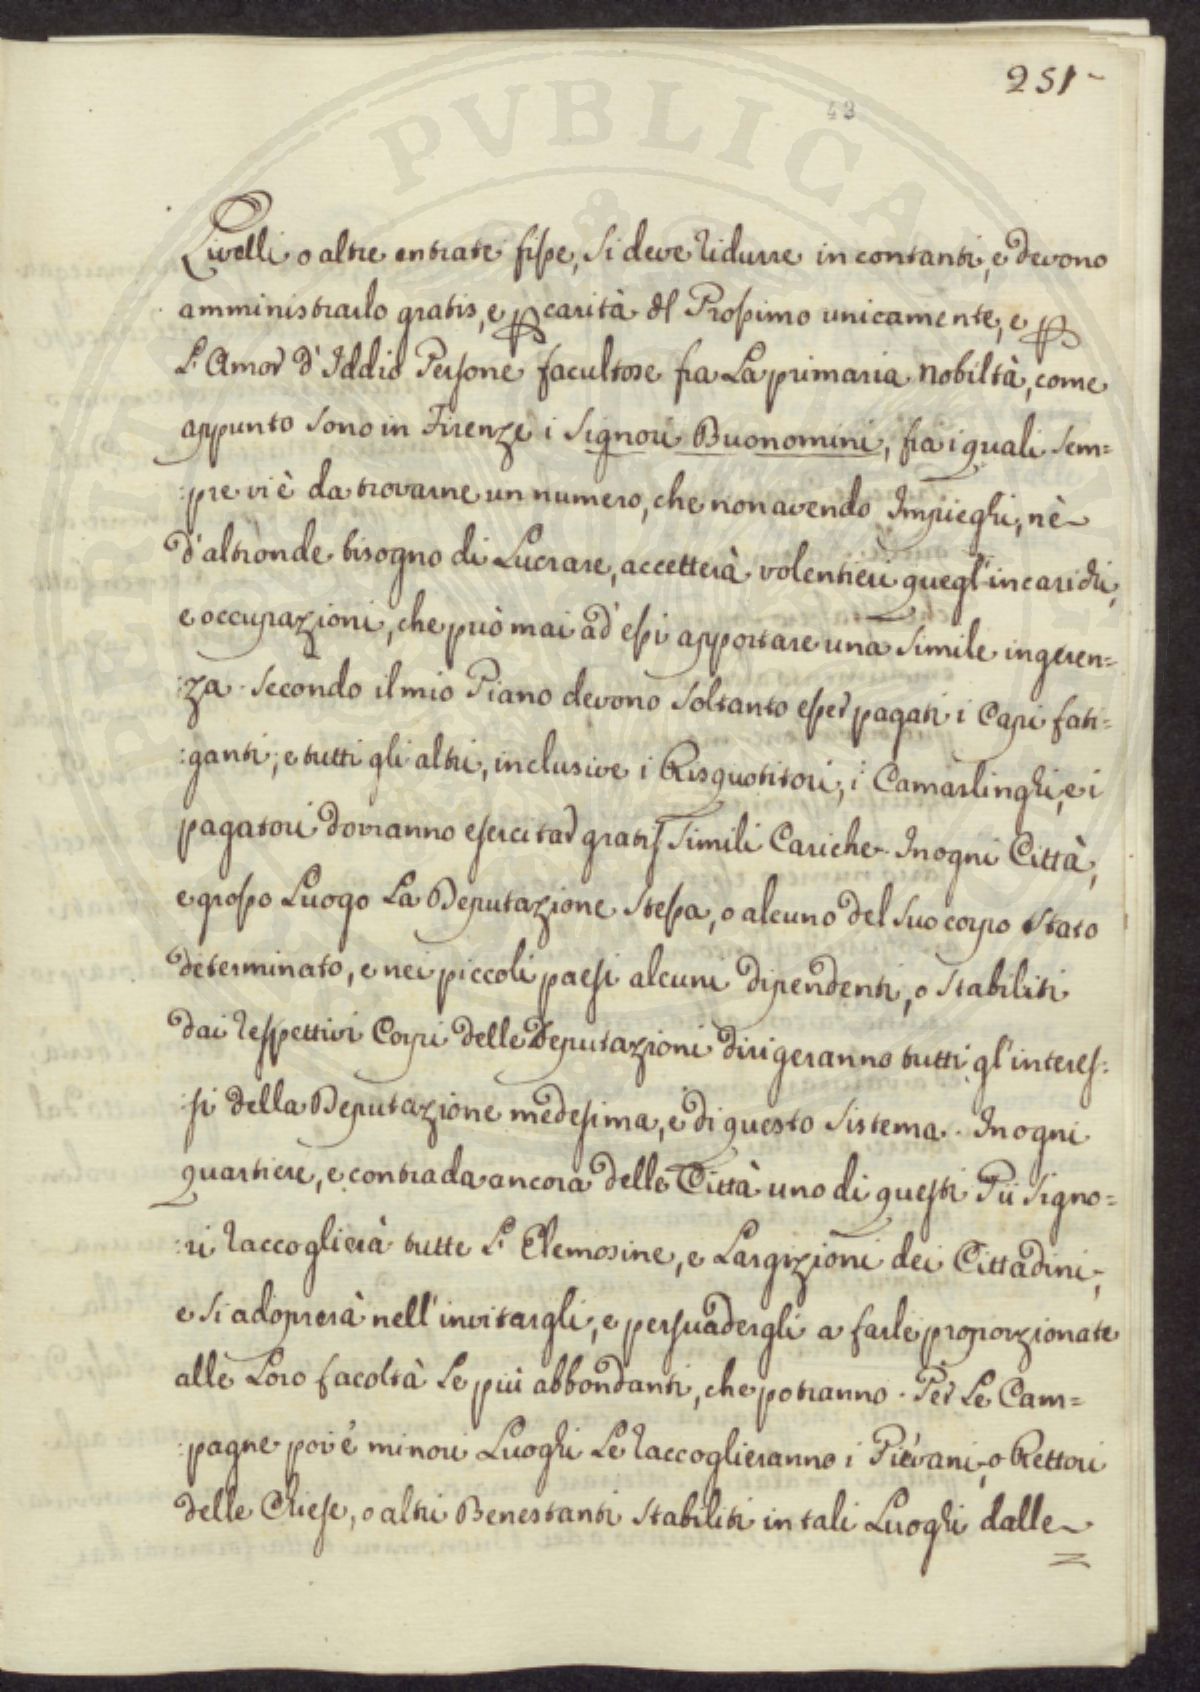 251
43
Livelli o altre entrate fisse, si deve ridurre in contanti, e devono
amministrarlo gratis, e p carità del Prossimo unicamente, e p
L'Amor d'Iddio Persone facultose fra La primaria Nobiltà, come
appunto sono in Firenze i Signori Buonomini, fra i quali sem=
:pre vi è da trovarne un numero, che non avendo Impieghi, nè
d'altronde bisogno di Lucrare, accetterà volentieri quegl'incarichi,
e occupazioni, che può mai ad essi apportare una simile ingeren=
:za. Secondo il mio Piano devono soltanto esser pagati i Capi fati=
:ganti, e tutti gli altri, inclusive i Risquotitori, i Camarlinghi, e i
pagatori dovranno esercitar gratis simili Cariche. In ogni Città,
e grosso Luogo La Deputazione stessa, o alcuno del suo corpo stato
determinato, e nei piccoli paesi alcuni dipendenti, o stabiliti
dai respettivi Corpi delle Deputazioni dirigeranno tutti gl'interes=
:si della Deputazione medesima, e di questo Sistema. In ogni
quartiere, e contrada ancora delle Città uno di questi Pii Signo=
:ri raccoglierà tutte L'Elemosine, e Largizioni dei Cittadini,
e si adoprerà nell'invitargli, e persuadergli a farle proporzionate
alle Loro facoltà Le più abbondanti, che potranno. Per Le Cam=
:pagne poi e minori Luoghi Le raccoglieranno i Pievani, o Rettori
delle Chiese, o altri Benestanti stabiliti in tali Luoghi dalle
PUBLICA